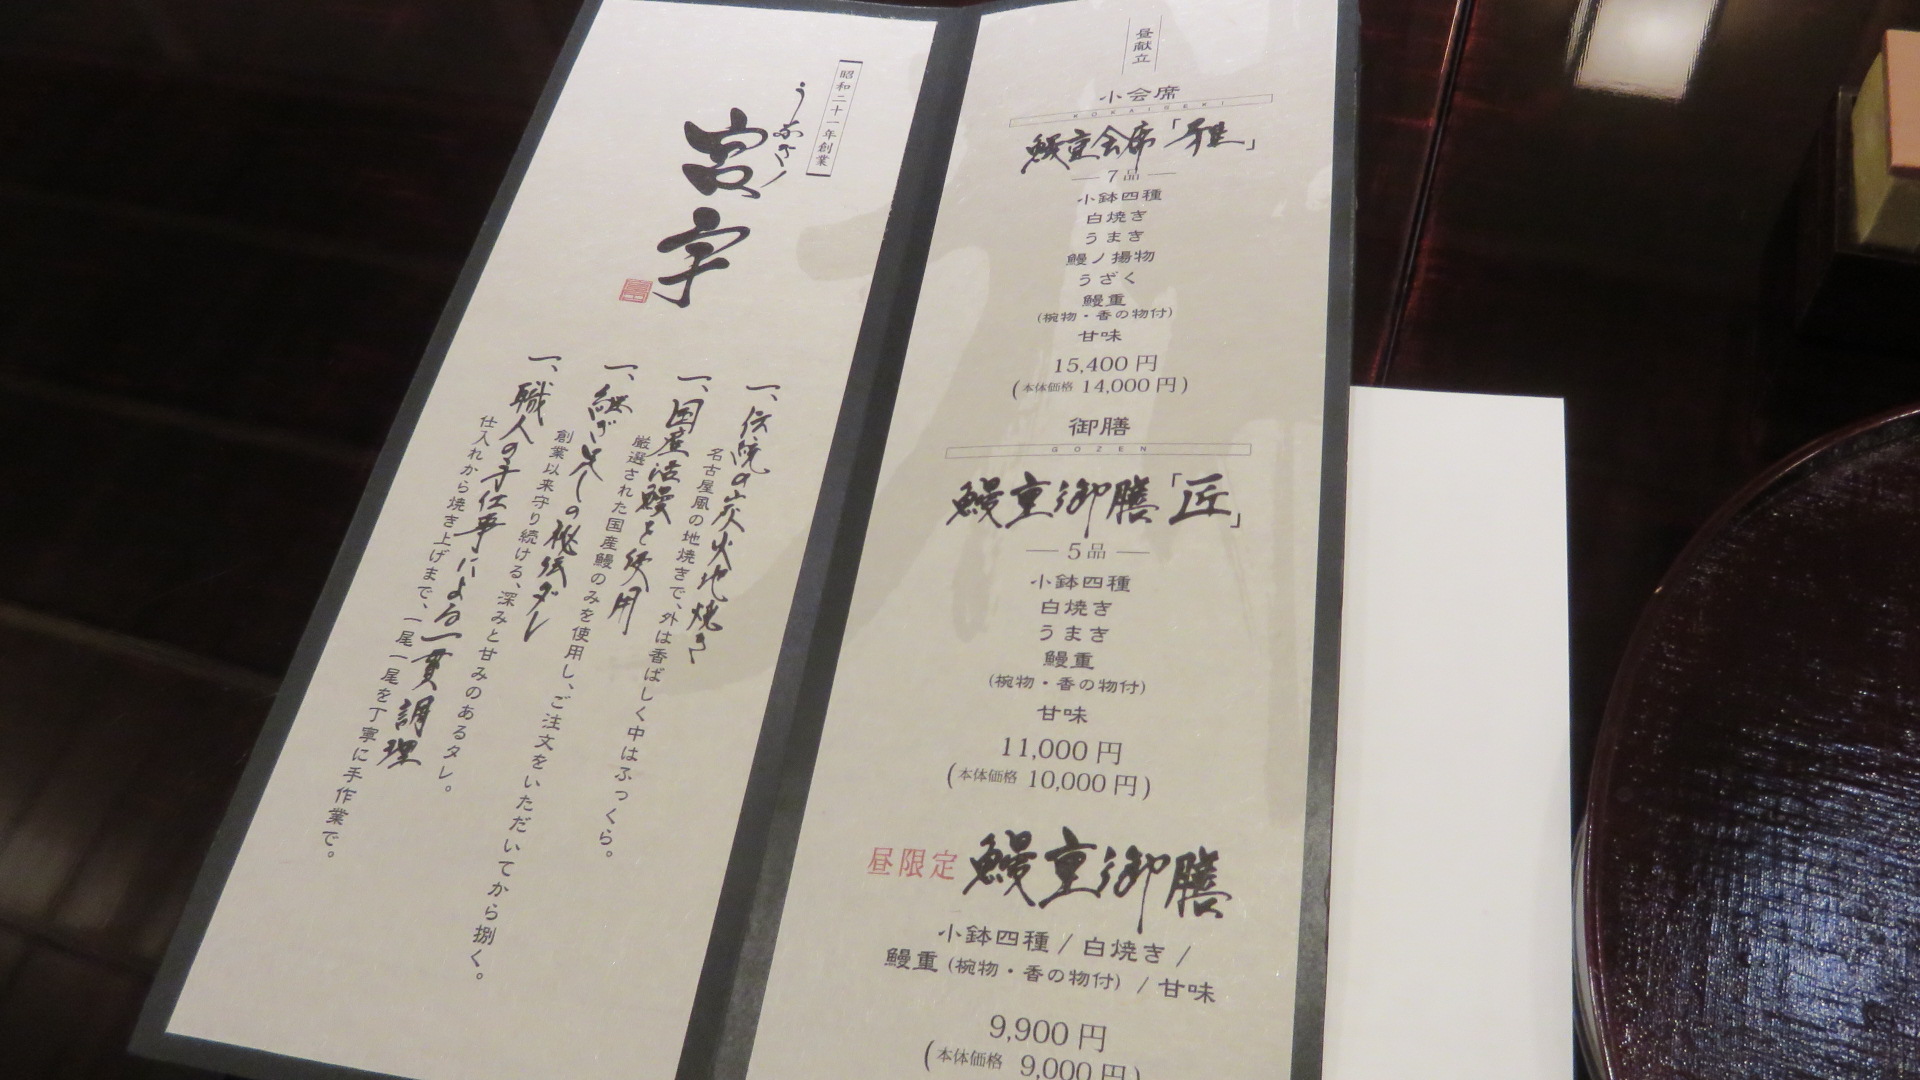 昭和二十一年創業
うなぎ
宮宇
一、伝統の炭火地焼き
名古屋風の地焼きで、外は香ばしく中はふっくら。
一、国産活鰻を使用
厳選された国産鰻のみを使用し、ご注文をいただいてから捌く。
一、継ぎ足しの秘伝ダレ
創業以来守り続ける、深みと甘みのあるタレ。
一、職人の手仕事による一貫調理
仕入れから焼き上げまで、一尾一尾を丁寧に手作業で。
昼献立
小会席
KOKAISEKI
鰻重会席「雅」
7品
小鉢四種
白焼き
うまき
鰻ノ揚物
うざく
鰻重
(椀物・香の物付)
甘味
15,400円
(本体価格 14,000円)
御膳
GOZEN
鰻重御膳「匠」
5品
小鉢四種
白焼き
うまき
鰻重
(椀物・香の物付)
甘味
11,000円
(本体価格 10,000円)
昼限定 鰻重御膳
小鉢四種 / 白焼き /
鰻重 (椀物・香の物付) / 甘味
9,900円
(本体価格 9,000円)